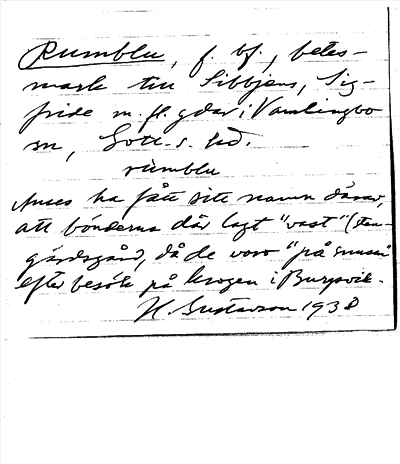 Rumblu, f. bf., betes-
mark till Sibbjens, Sig-
fride m.fl. gdar i Vamlingbo
sn, Gotl. s. hd.
rùmblu
Anses ha fått sitt namn därav,
att bönderna där lagt "vast" (sten-
gärdsgård), då de voro "på snusen"
efter besök på krogen i Burgsvik.
H. Gustavson 1938